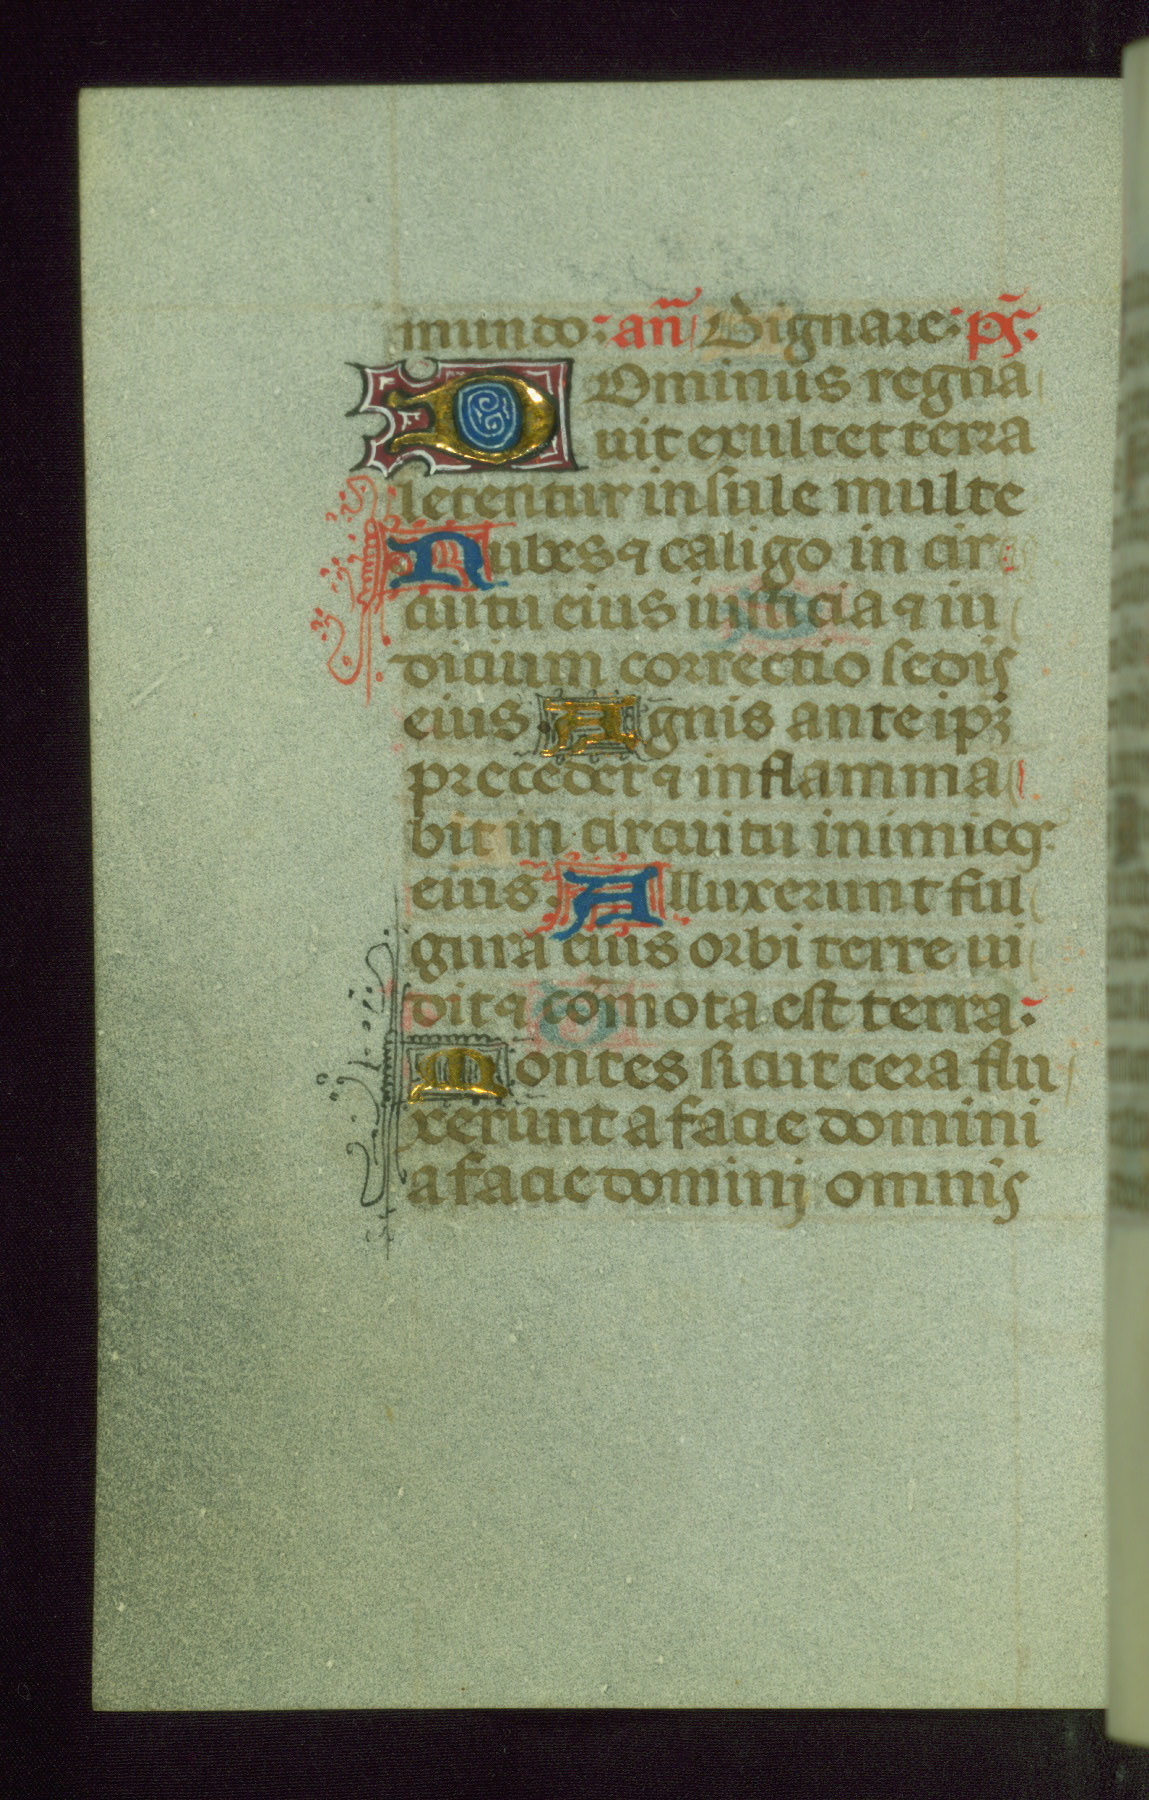 mundo: añ Dignare: pš.
DOminus regna
uit exultet terra
letentur insule multe
Nubes ⁊ caligo in cir
cuitu eius iusticia ⁊ iu
dicium correctio sedis
eius. Agnis ante ipꝫ
precedet ⁊ inflamma
bit in circuitu inimicꝯ
eius. Alluxerunt ful
gura eius orbi terre ui
dit ⁊ cōmota est terra.
Montes sicut cera flu
xerunt a facie domini
a facie domini omnis